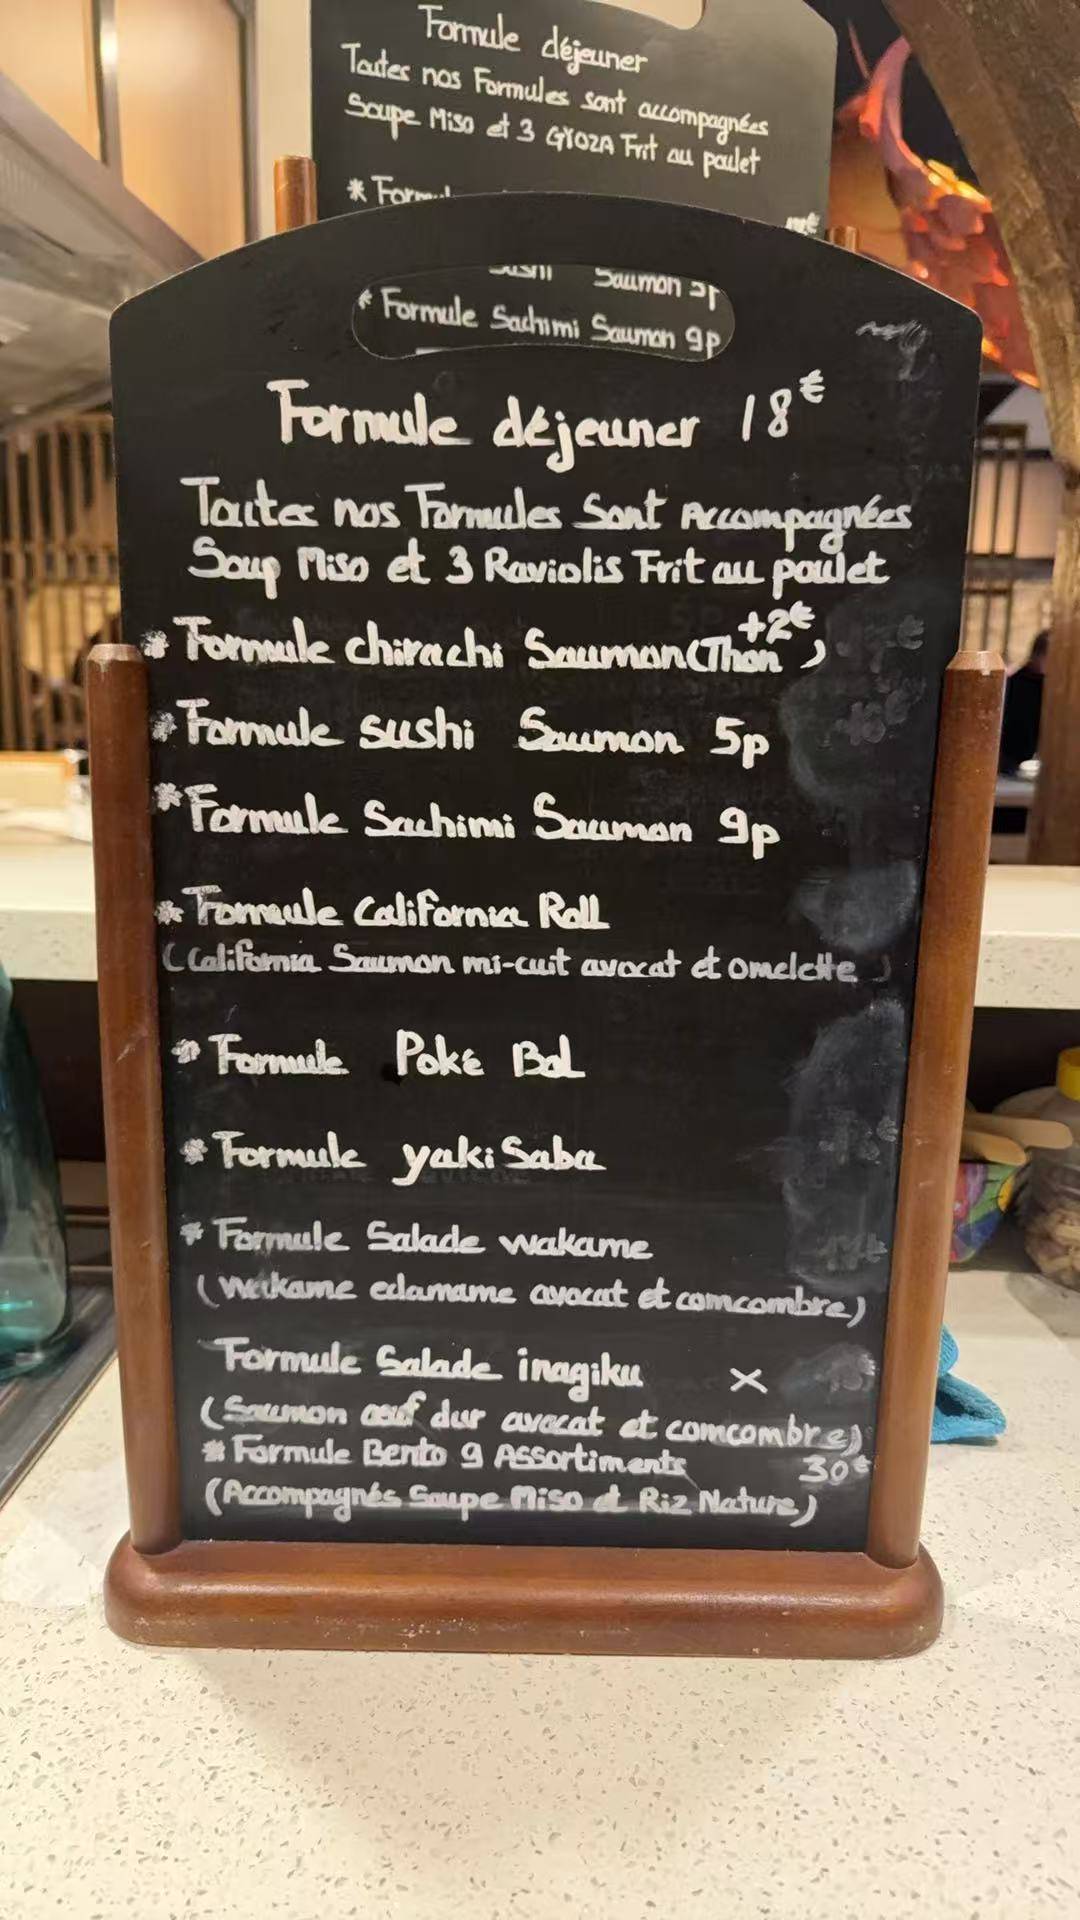 Formule déjeuner
Toutes nos Formules sont accompagnées
Soupe Miso et 3 GYOZA Frit au poulet
* Formul
Sushi Saumon 5p
* Formule Sachimi Saumon 9p
Formule déjeuner 18€
Toutes nos Formules Sont Accompagnées
Soup Miso et 3 Raviolis Frit au poulet
+2€
* Formule chirachi Saumon (Thon )
* Formule sushi Saumon 5p
* Formule Sachimi Saumon 9p
* Formule California Roll
(California Saumon mi-cuit avocat et omelette )
* Formule Poké Bol
* Formule yaki Saba
* Formule Salade wakame
(wakame edamame avocat et comcombre)
Formule Salade inagiku ×
(Saumon oeuf dur avacat et comcombre)
* Formule Bento 9 Assortiments 30€
(Accompagnés Soupe Miso et Riz Nature)